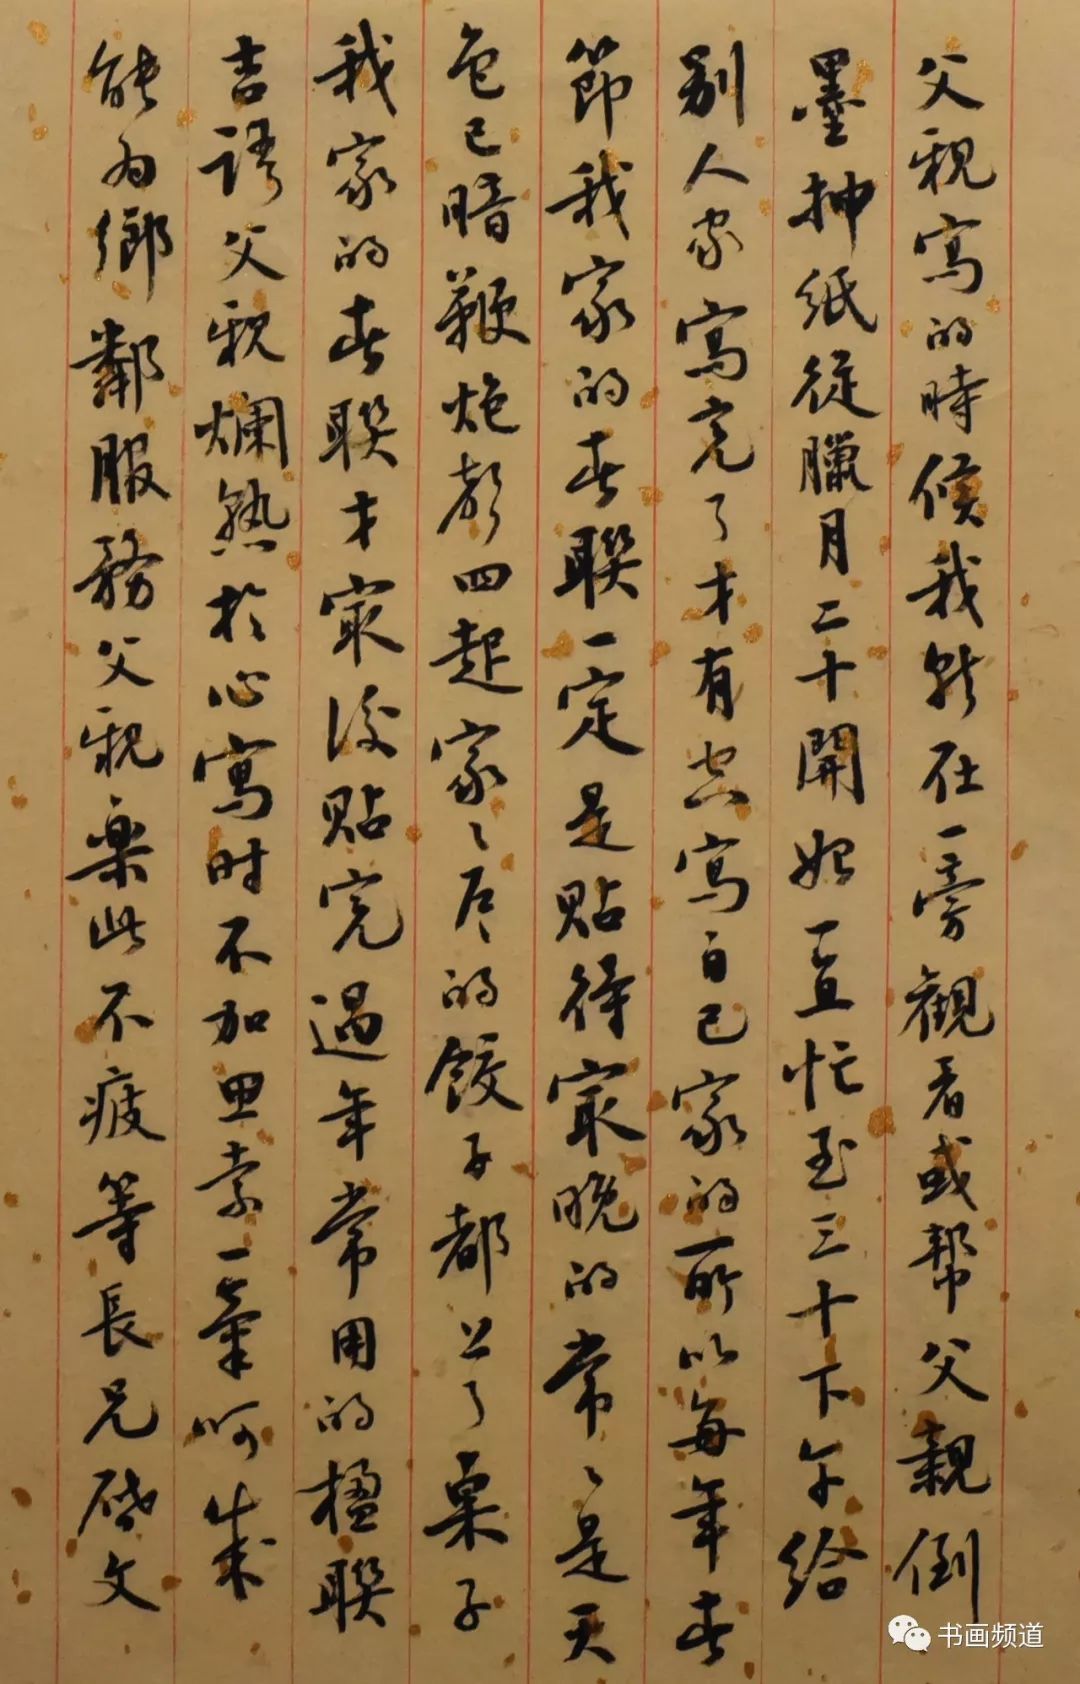 父親寫的時候我就在一旁觀看或幫父親倒
墨抻紙從臘月二十開始一直忙至三十下午給
别人家寫完了才有空寫自己家的所以每年春
節我家的春聯一定是貼得最晚的常々是天
色已暗鞭炮聲四起家々户户的餃子都上了桌子
我家的春聯才最後貼完過年常用的楹聯
吉語父親爛熟於心寫时不加思索一氣呵成
能为鄉鄰服務父親樂此不疲等長兄啓文
书画频道